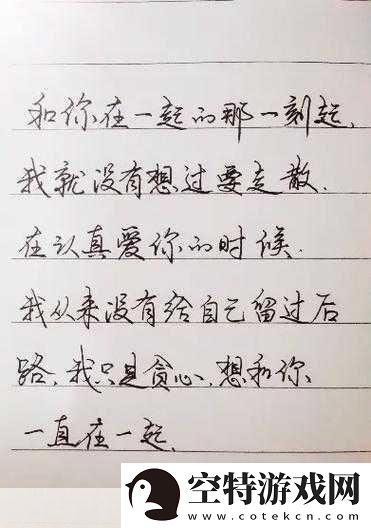 和你在一起的那一刻起,
我就没有想过要走散.
在认真爱你的时候.
我从来没有给自己留过后
路,我只是贪心,想和你、
一直在一起、
空特游戏网
www.cotekcn.com